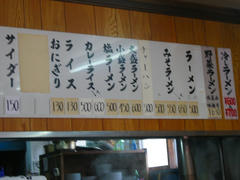 冷しラーメン
野菜ラーメン
ラーメン 500
みそラーメン
チャーハン
大盛ラーメン 600
小盛ラーメン 450
塩ラーメン 500
カレーライス 600
ライス 130
おにぎり 130
サイダー 150